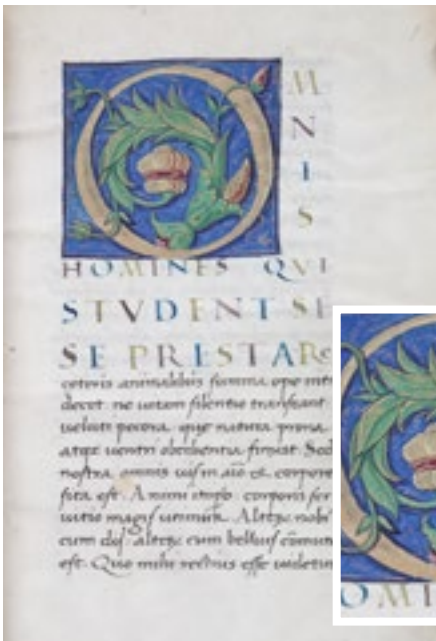 OMNIS
HOMINES QVI
STVDENT SE
SE PRESTARE
ceteris animalibus summa ope niti
decet ne uitam silentio transeant
ueluti pecora. que natura prona
atqz uentri obedientia finxit Sed
nostra omnis uis in aio & corpore
sita est. Animi imperio corporis ser
uitio magis utimur. Alterz nobis
cum dijs alterz cum belluis comune
est. Quo mihi rectius esse uidetur
OMI